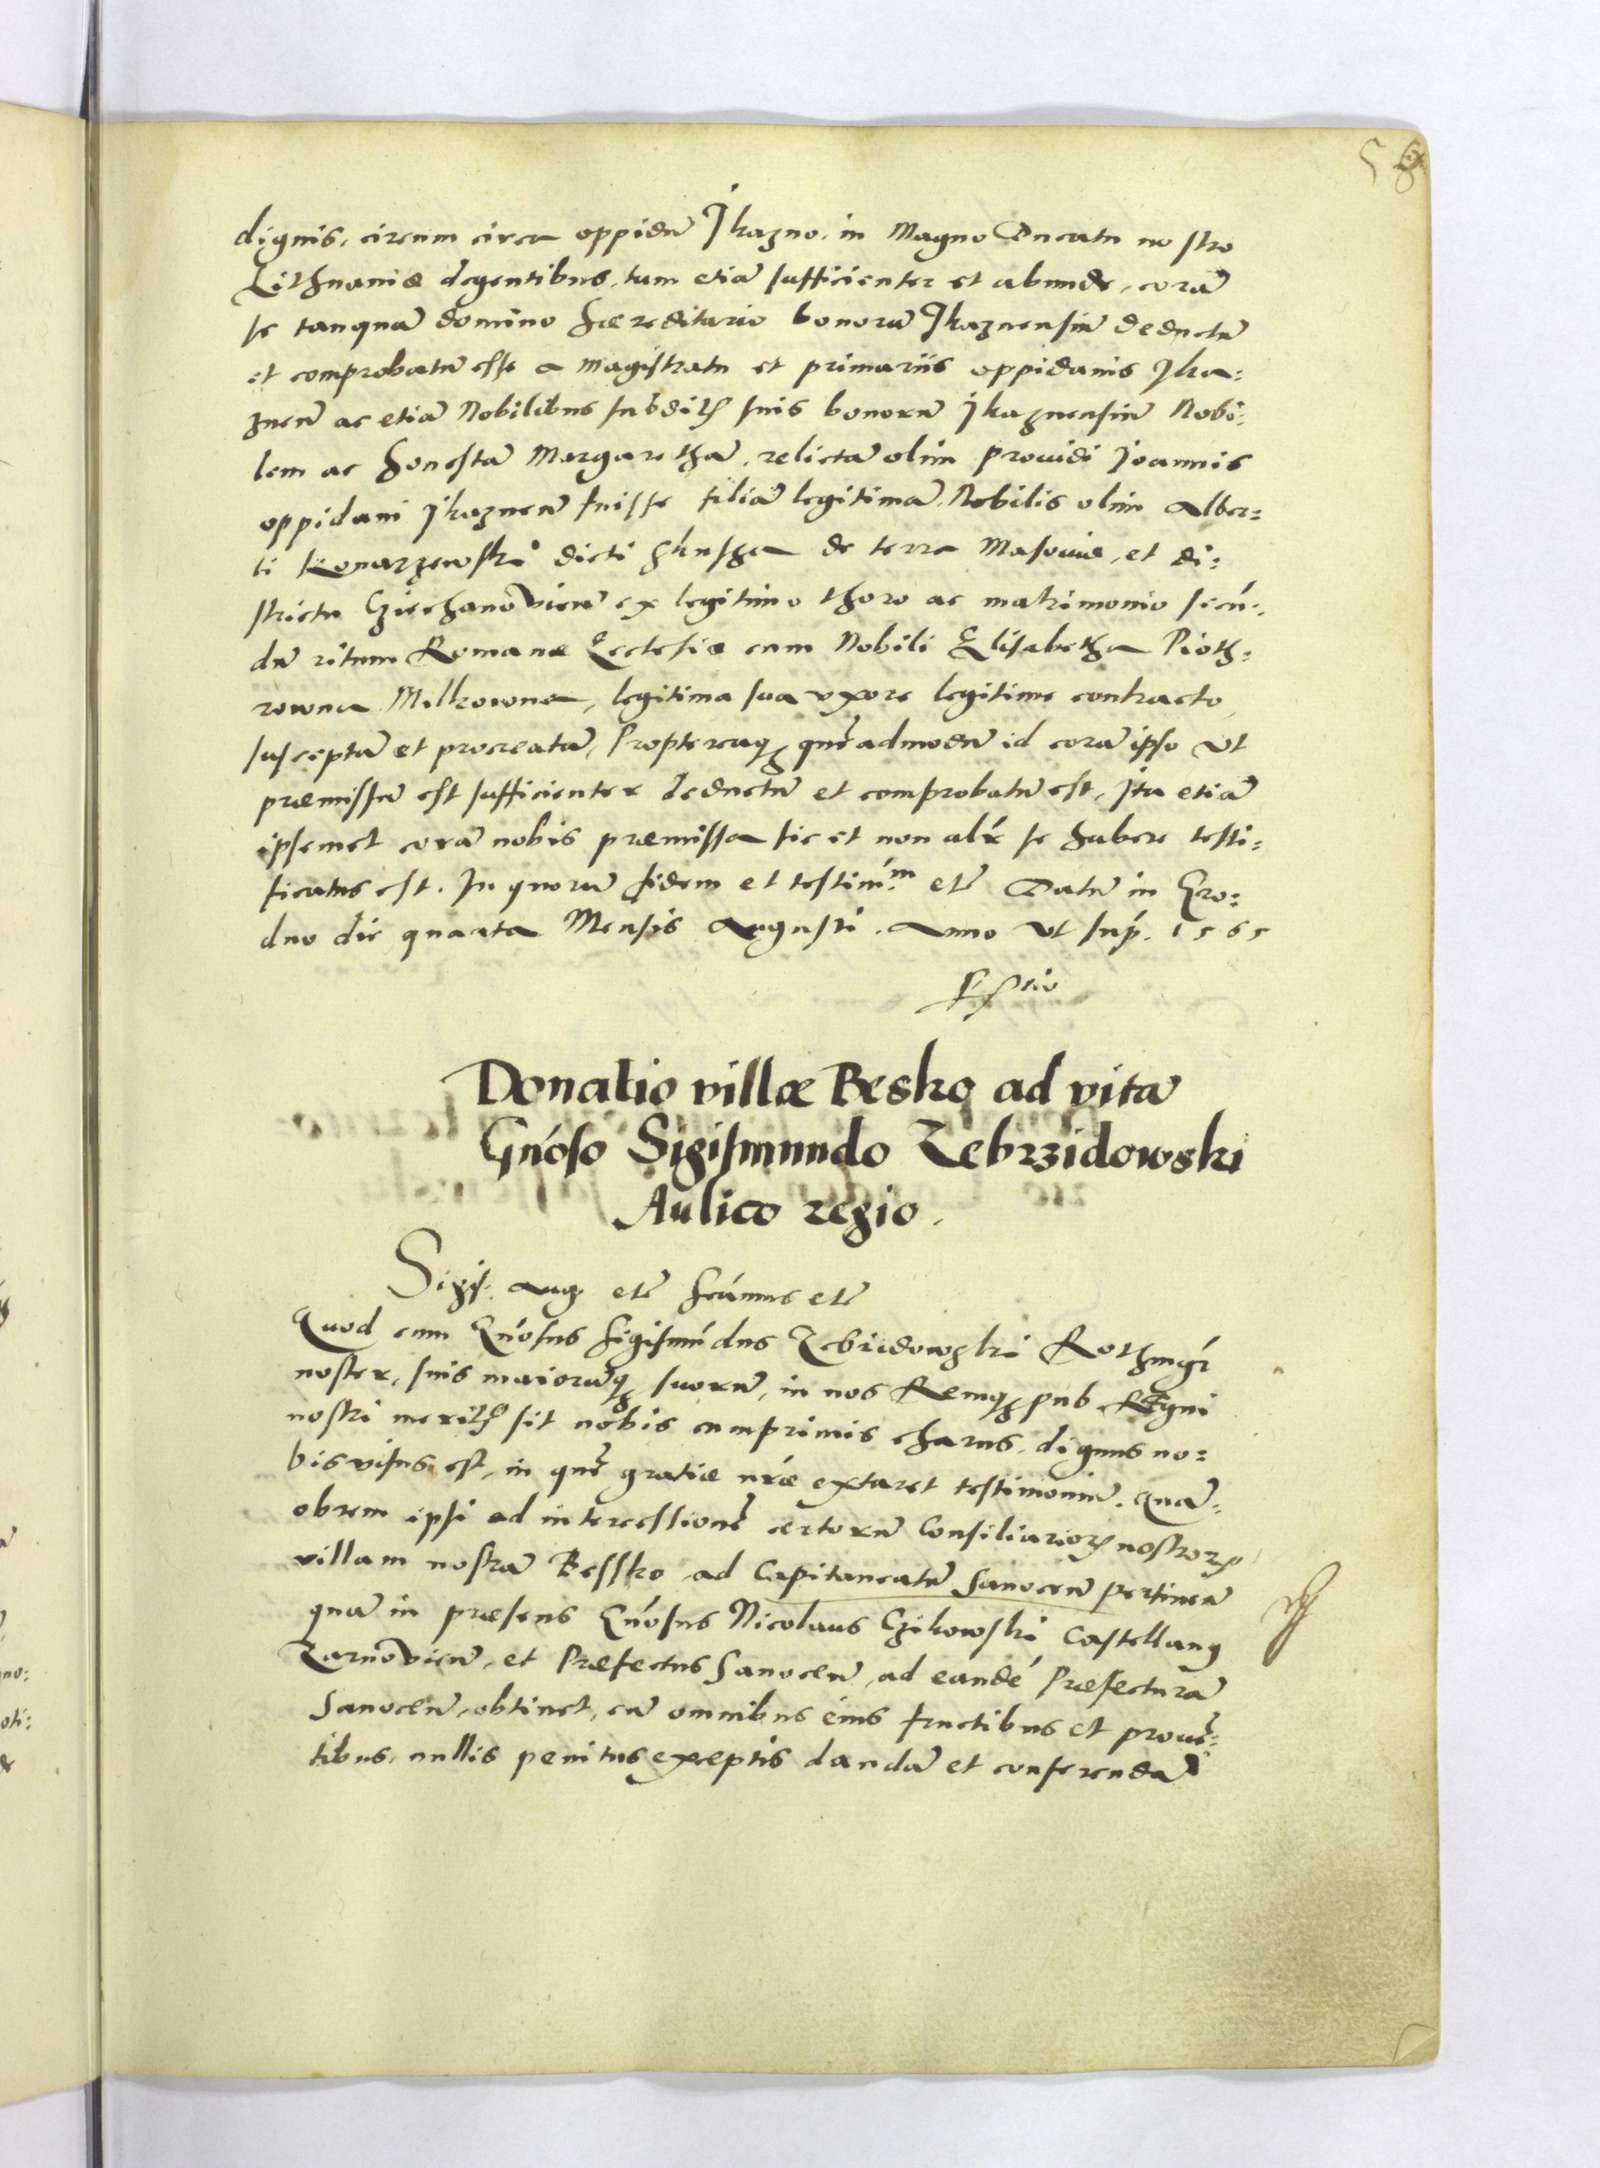 58
dignis, circum circa oppidũ Jkazno, in Magno Ducatu nostro
Lithuaniæ degentibus, tum etiã sufficienter et abunde, corã
se tanquã domino hæreditario bonorũ Jkaznensiũ deductũ
et comprobatũ esse a magistratu et primariis oppidanis Jka=
znen̄ ac etiã Nobilibus subditꝭ suis bonorũ Jkaznensiũ Nobi=
lem ac honestã Margarethã, relictã olim prouidi Joannis
oppidani Jkaznen̄ fuisse filiã legitimã, Nobilis olim Alber=
ti Konarzewski dicti de terra Masouiæ, et di=
strictu Cziechanouien̄ ex legitimo thoro ac matrimonio secũ=
dũ ritum Romanæ Ecclesiæ cum Nobili Elisabetha Pioth=
rowna Milkowna, legitima sua vxore legitime contracto,
susceptã et procreatã, Propterεaq́ꝫ quẽadmodũ id corã ipso vt
præmissũ est sufficienter deductũ et comprobatũ est, Jta etiã
ipsemet corã nobis præmissa sic et non alr̃ se habere testi=
ficatus est. In quorũ fidem et testim̃.m etc̃ Datũ in Gro=
dno die quarta Mensis Augusti. Anno vt sup̃. 1565
Donatio villæ Besko ad vitã
Gn̄oso Sigismundo Zebrzidowski
Aulico regio.
Sigis. Aug. etc̃ scimus etc̃
Quod cum Gn̄osus Sigismũdus Zebridowski Rothmgr̃
noster, suis maiorũqꝫ suorũ, in nos Remqꝫ pub Regni
nostri meritꝭ sit nobis cumprimis charus, dignus no=
bis visus est, in quẽ gratiæ nr̃æ extaret testimoniũ. Quã=
obrem ipsi ad intercessionẽ certorũ Consiliarioꝝ nostroꝝ
villam nostrã Bessko ad Capitaneatũ Sanocen̄ pertinen̄
quã in præsens Gn̄osus Nicolaus Czikowski Castellanꝰ
Zarnouien̄, et Præfectus Sanocen̄, ad eandẽ Præfecturã
Sanocen̄, obtinet, cũ omnibus eius fructibus et prouẽ=
tibus, nullis penitus exceptis dandã et conferendã